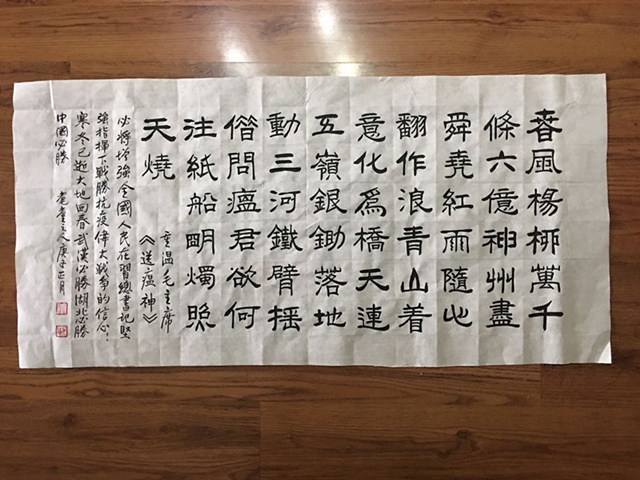 春風楊柳萬千
條六億神州盡
舜堯紅雨隨心
翻作浪青山着
意化爲橋天連
五嶺銀鋤落地
動三河鐵臂摇
借問瘟君欲何
注紙船眀燭照
天燒
重温毛主席
《送瘟神》
必將增強全國人民在習總書記堅
強指揮下戰勝抗疫偉大戰爭的信心！
寒冬已逝大地回春武漢必勝湖北必勝
中國必勝 主人庚子正月